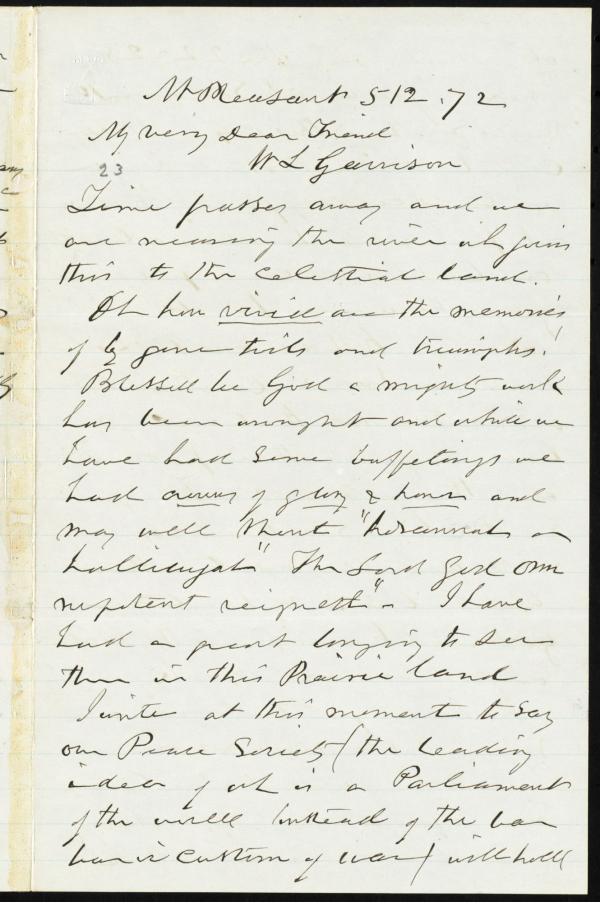 Mt Pleasant 5 12. 72
My very Dear Friend
W L Garrison
23
Time passes away and we
are nearing the river wh joins
this to the celestial land.
Oh how vivid are the memories
of by gone toils and triumphs!
Blessed be God a mighty work
has been wrought and while we
have had some buffetings we
had crowns of glory & honor and
may well shout "hosannah or
hallelujah" The Lord God om
nipotent reigneth" - I have
had a great longing to see
thee in this Prairie land
I write at this moment to say
our Peace Society (the leading
idea of wh is a Parliament
of the world instead of the bar
baric custom of war) will hold